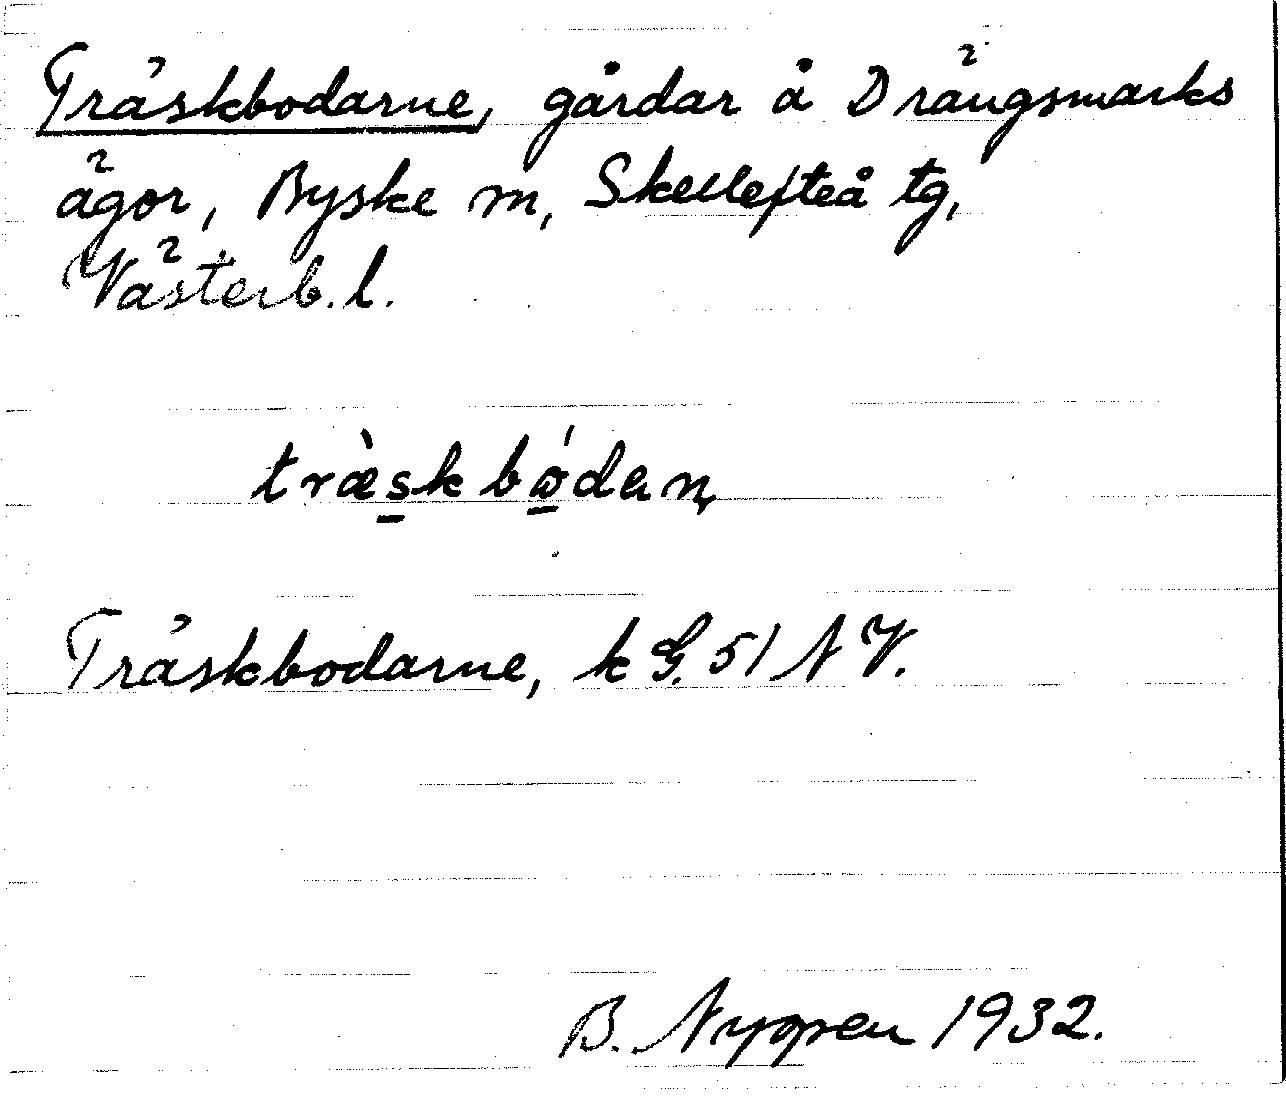 Träskbodarne, gårdar å Drängsmarks
ägor, Byske sn, Skellefteå tg,
Västerb. l.
træ̀skbǿdan
Träskbodarne, k G. 51 N V.
B. Nygren 1932.